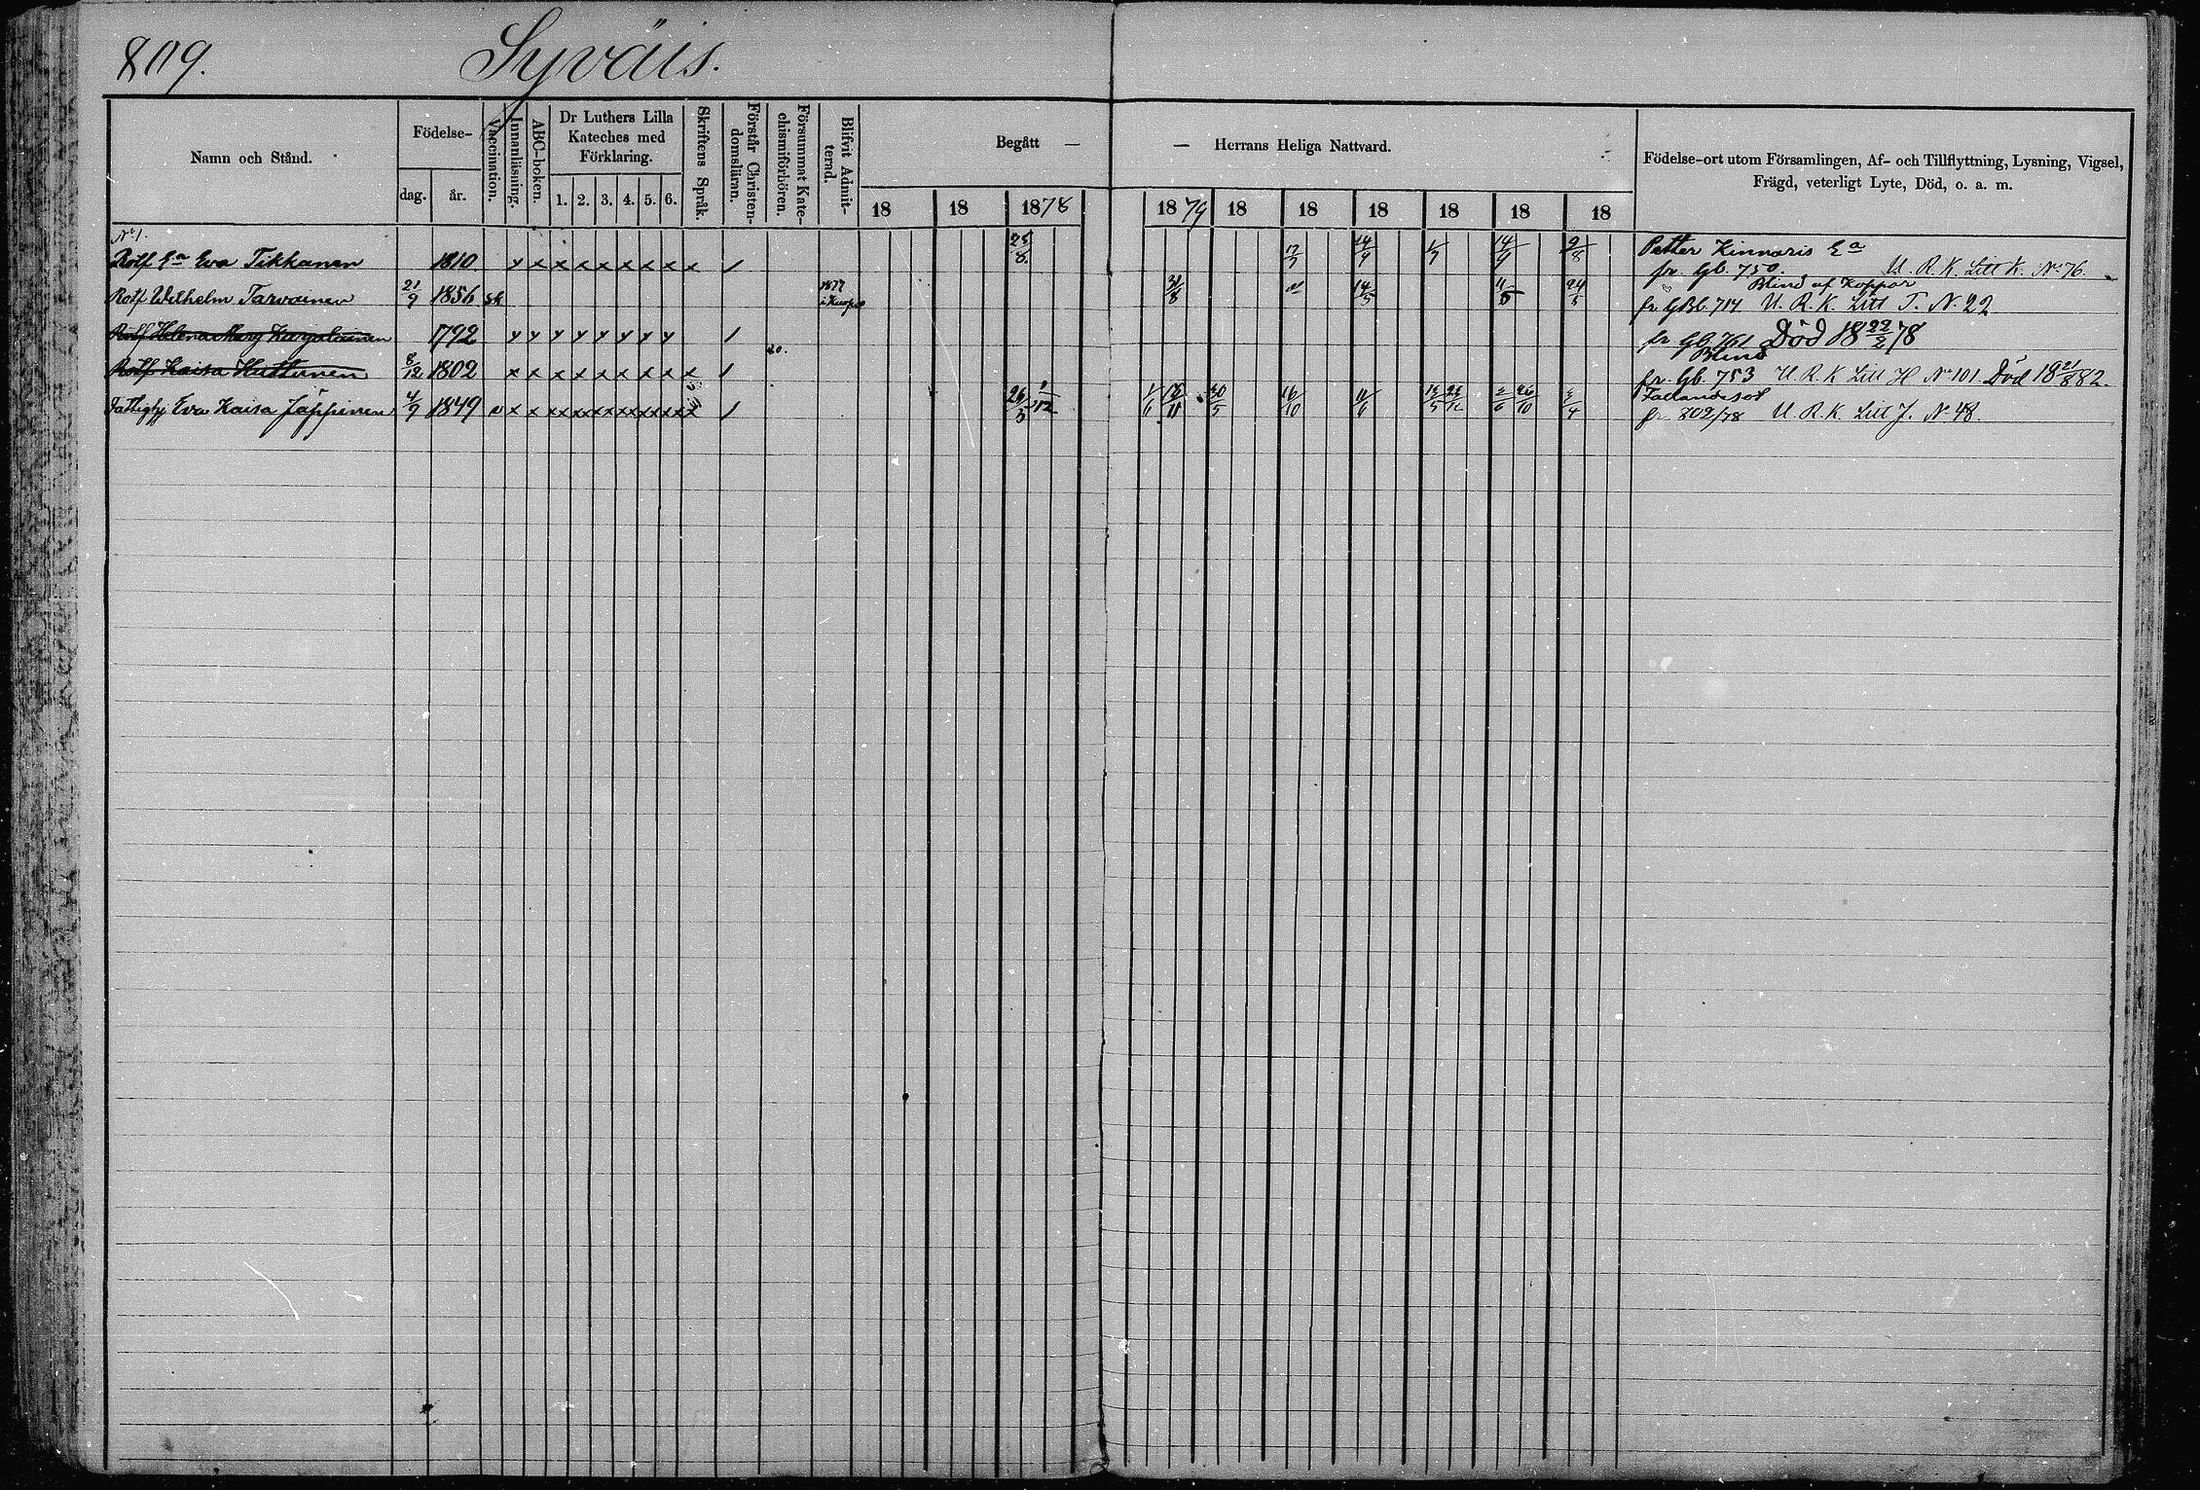 809. Syväis.
Namn och Stånd.
Födelse-
dag. år.
Vaccination.
Innanläsning.
ABC-boken.
Dr Luthers Lilla
Kateches med
Förklaring.
1. 2. 3. 4. 5. 6.
Skriftens Språk.
Förstår Christen-
domsläran.
Försummat Kate-
chismiförhören.
Blifvit Admit-
terad.
Begått —
— Herrans Heliga Nattvard.
18 18 1878 1879 18 18 18 18 18 18
Födelse-ort utom Församlingen, Af- och Tillflyttning, Lysning, Vigsel,
Frägd, veterligt Lyte, Död, o. a. m.
No 1.
Rotf Ea Eva Tikkanen 1810 x x x x x x x x x / 25/8 17/7 14/4 1/7 14/4 9/8 Petter Kinnaris Ea
fr. Gb. 750. U. R. K. Litt K. No 76.
Blind af Koppor
Rotf Wilhelm Tarvainen 21/9 1856 1877 31/8 14/5 24/5 fr GBb. 714 U. R. K. Litt T. N. 22
Rotf Helena 1792 x x x x x x x x / fr Gb. 761 Död 18 22/2 78
Blind
Rotf Kaisa Huttunen 8/12 1802 x x x x x x x x x / fr. Gb. 753 U. R. K Litt H No 101 Död 18 21/8 82.
Fallandesot
Fattighj Eva Kaisa Jäppinen 4/9 1849 v x x xx x x x x x x / 26/5 1/12 1/6 30/5 16/10 11/6 fr 802/78 U. R. K. Litt J. No 48.